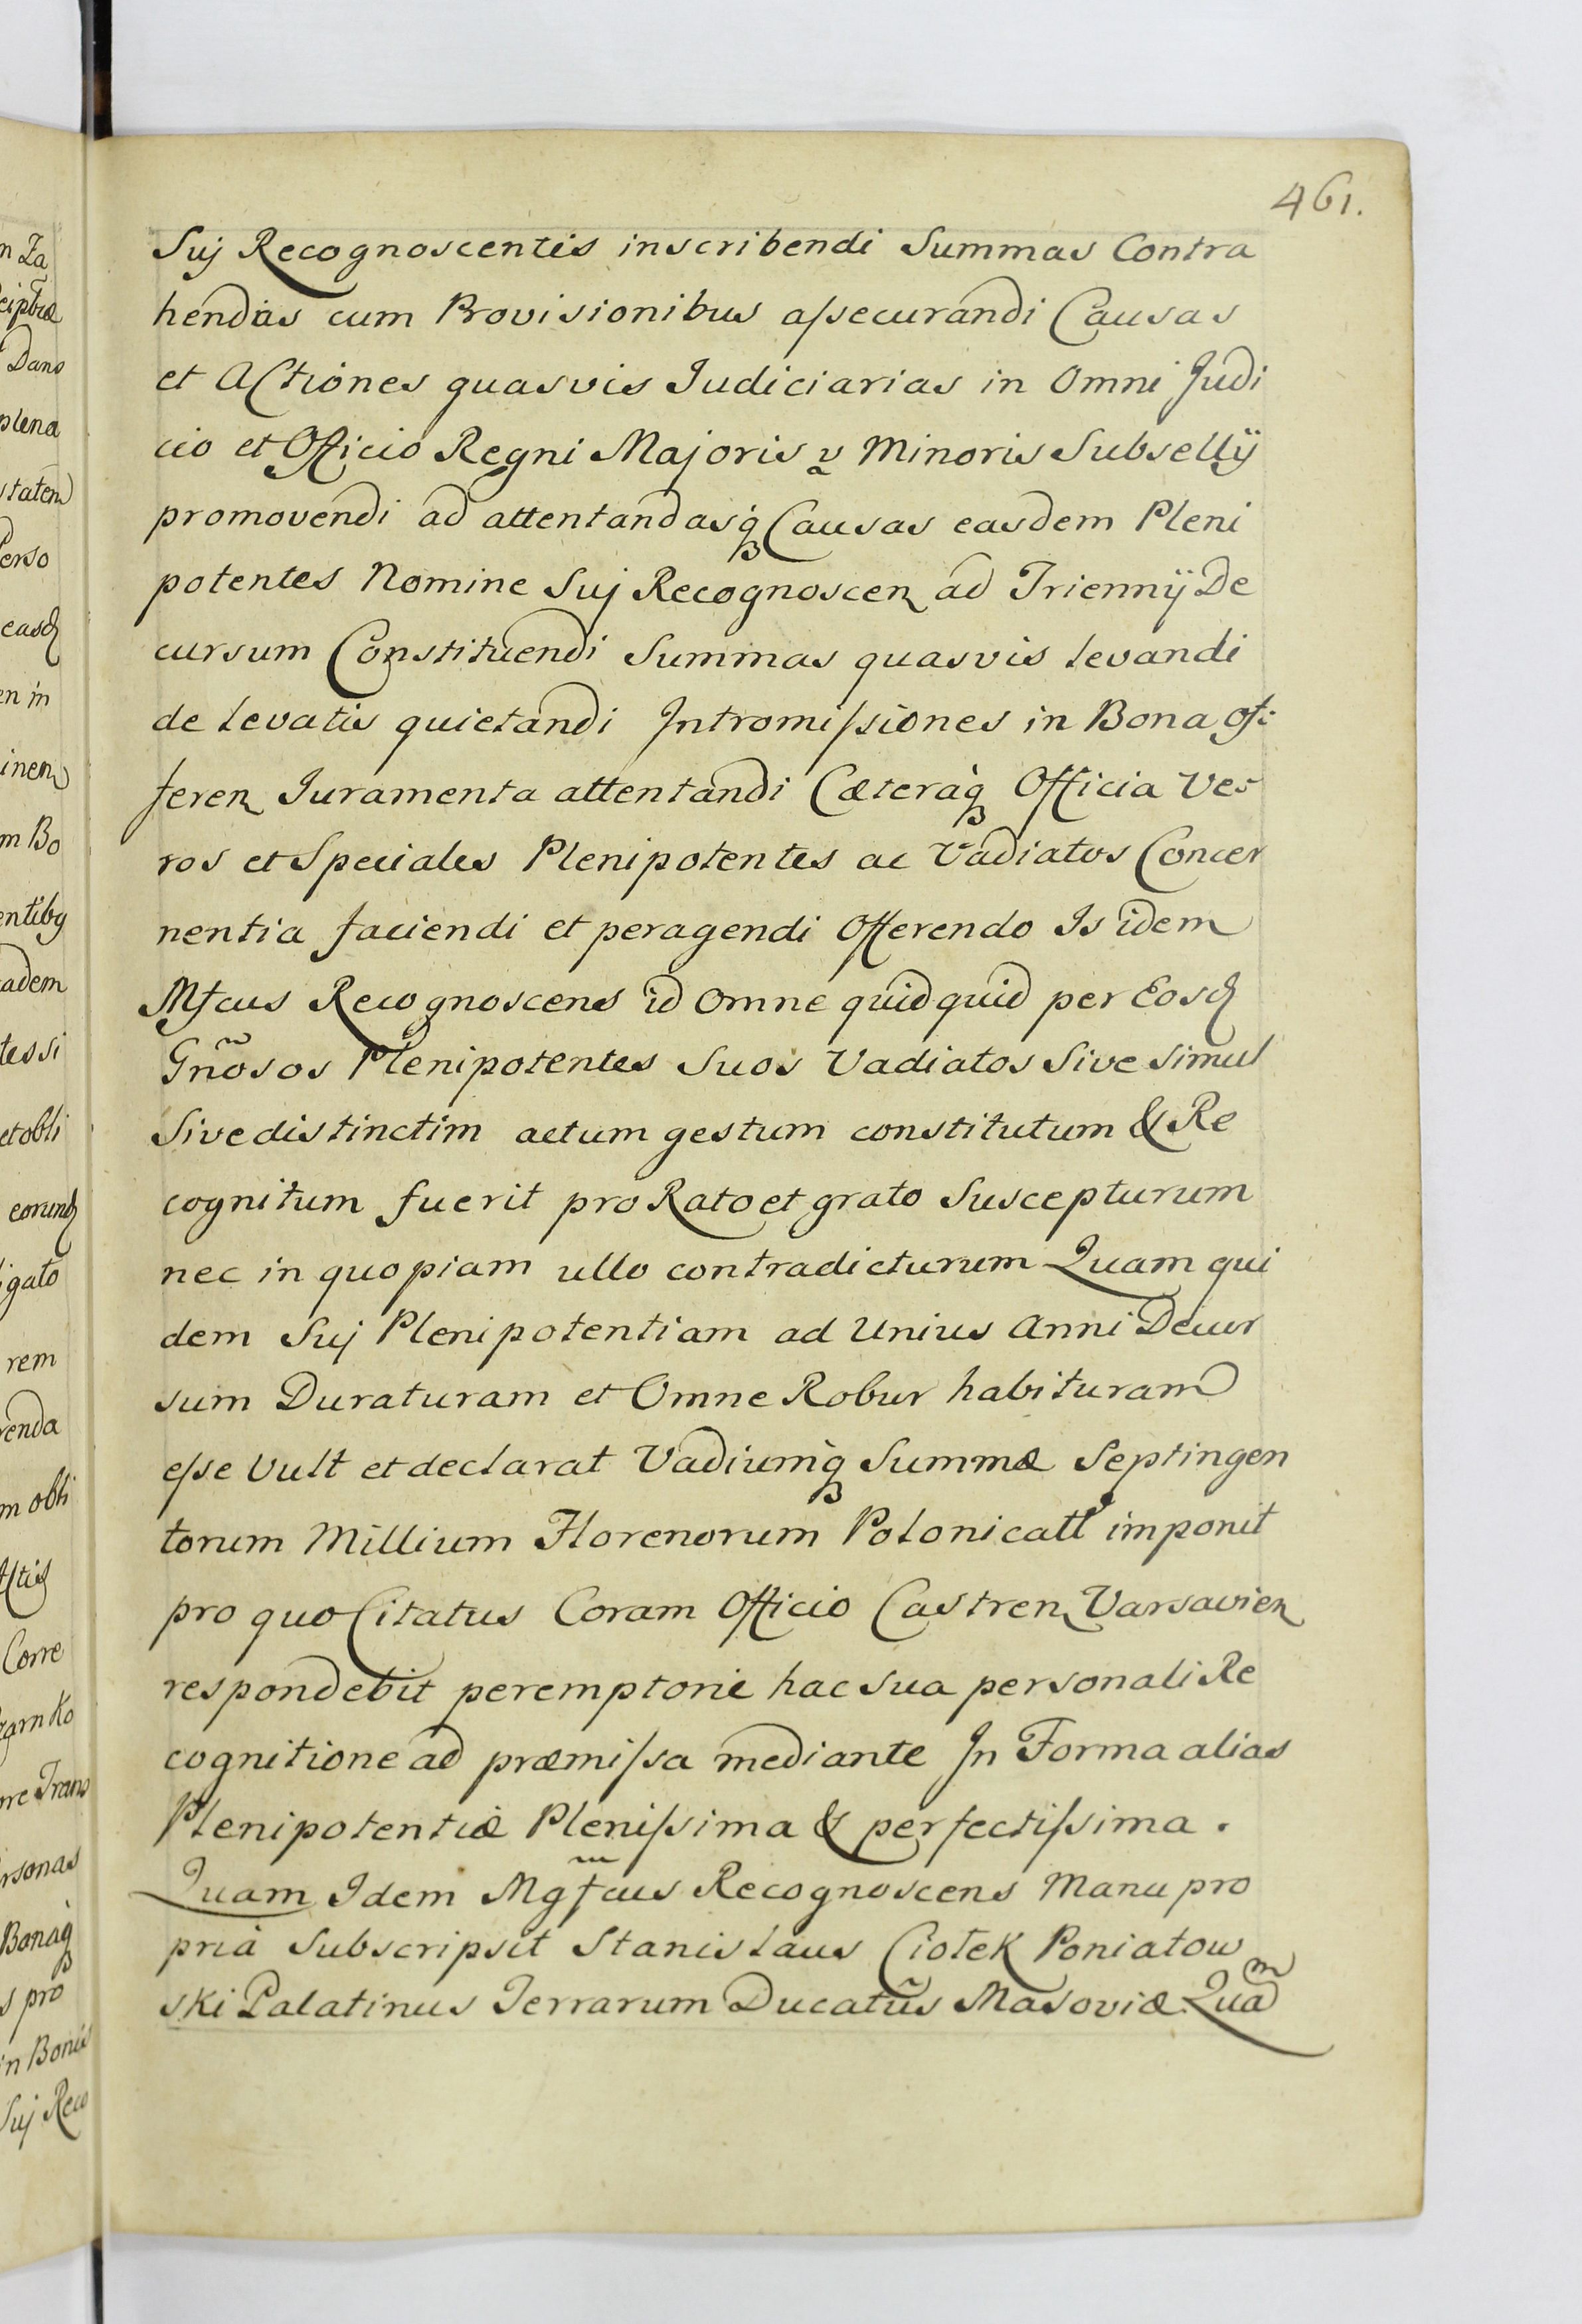 461.
Suj Recognoscentis inscribendi Summas Contra
hendas cum Provisionibus aſsecurandi Causas
et Actiones quasvis Judiciarias in Omni Judi
cio et Officio Regni Majoris v Minoris Subsellÿ
promovendi ad attentandasq́ Causas easdem Pleni
potentes Nomine Suj Recognoscen ad Triennÿ De
cursum Constituendi Summas quasvis levandi
de levatis quietandi Intromiſsiones in Bona of:
feren Juramenta attentandi Cæteraq̀ Officia Ve-
ros et Speciales Plenipotentes ac Vadiatos Concer
nentia faciendi et peragendi Offerendo Is idem
Mfcus Recognoscens id Omne quidquid per Eosd
Gnõsos Plenipotentes Suos Vadiatos Sive simul
Sive distinctim actum gestum constitutum & Re
cognitum fuerit pro Rato et grato Suscepturum
nec in quopiam ullo contradicturum Quam qui
dem Suj Plenipotentiam ad Unius Anni Decur
sum Duraturam et Omne Robur habituram
eſse Vult et declarat Vadiumq̀ Summæ Septingen
torum Millium Florenorum Polonicall imponit
pro quo Citatus Coram Officio Castren Varsavien
respondebit peremptorie hac sua personali Re
cognitione ad præmiſsa mediante In Forma alias
Plenipotentiæ Pleniſsima & perfectiſsima.
Quam Idem Mgfcus Recognoscens Manu pro
pria Subscripsit Stanislaus Ciołek Poniatow
ski Palatinus Terrarum Ducatũs Masoviæ Quam
en in
m Bo
adem
rem
m obli
Corre
s pro
in Bonis
Suj Reco